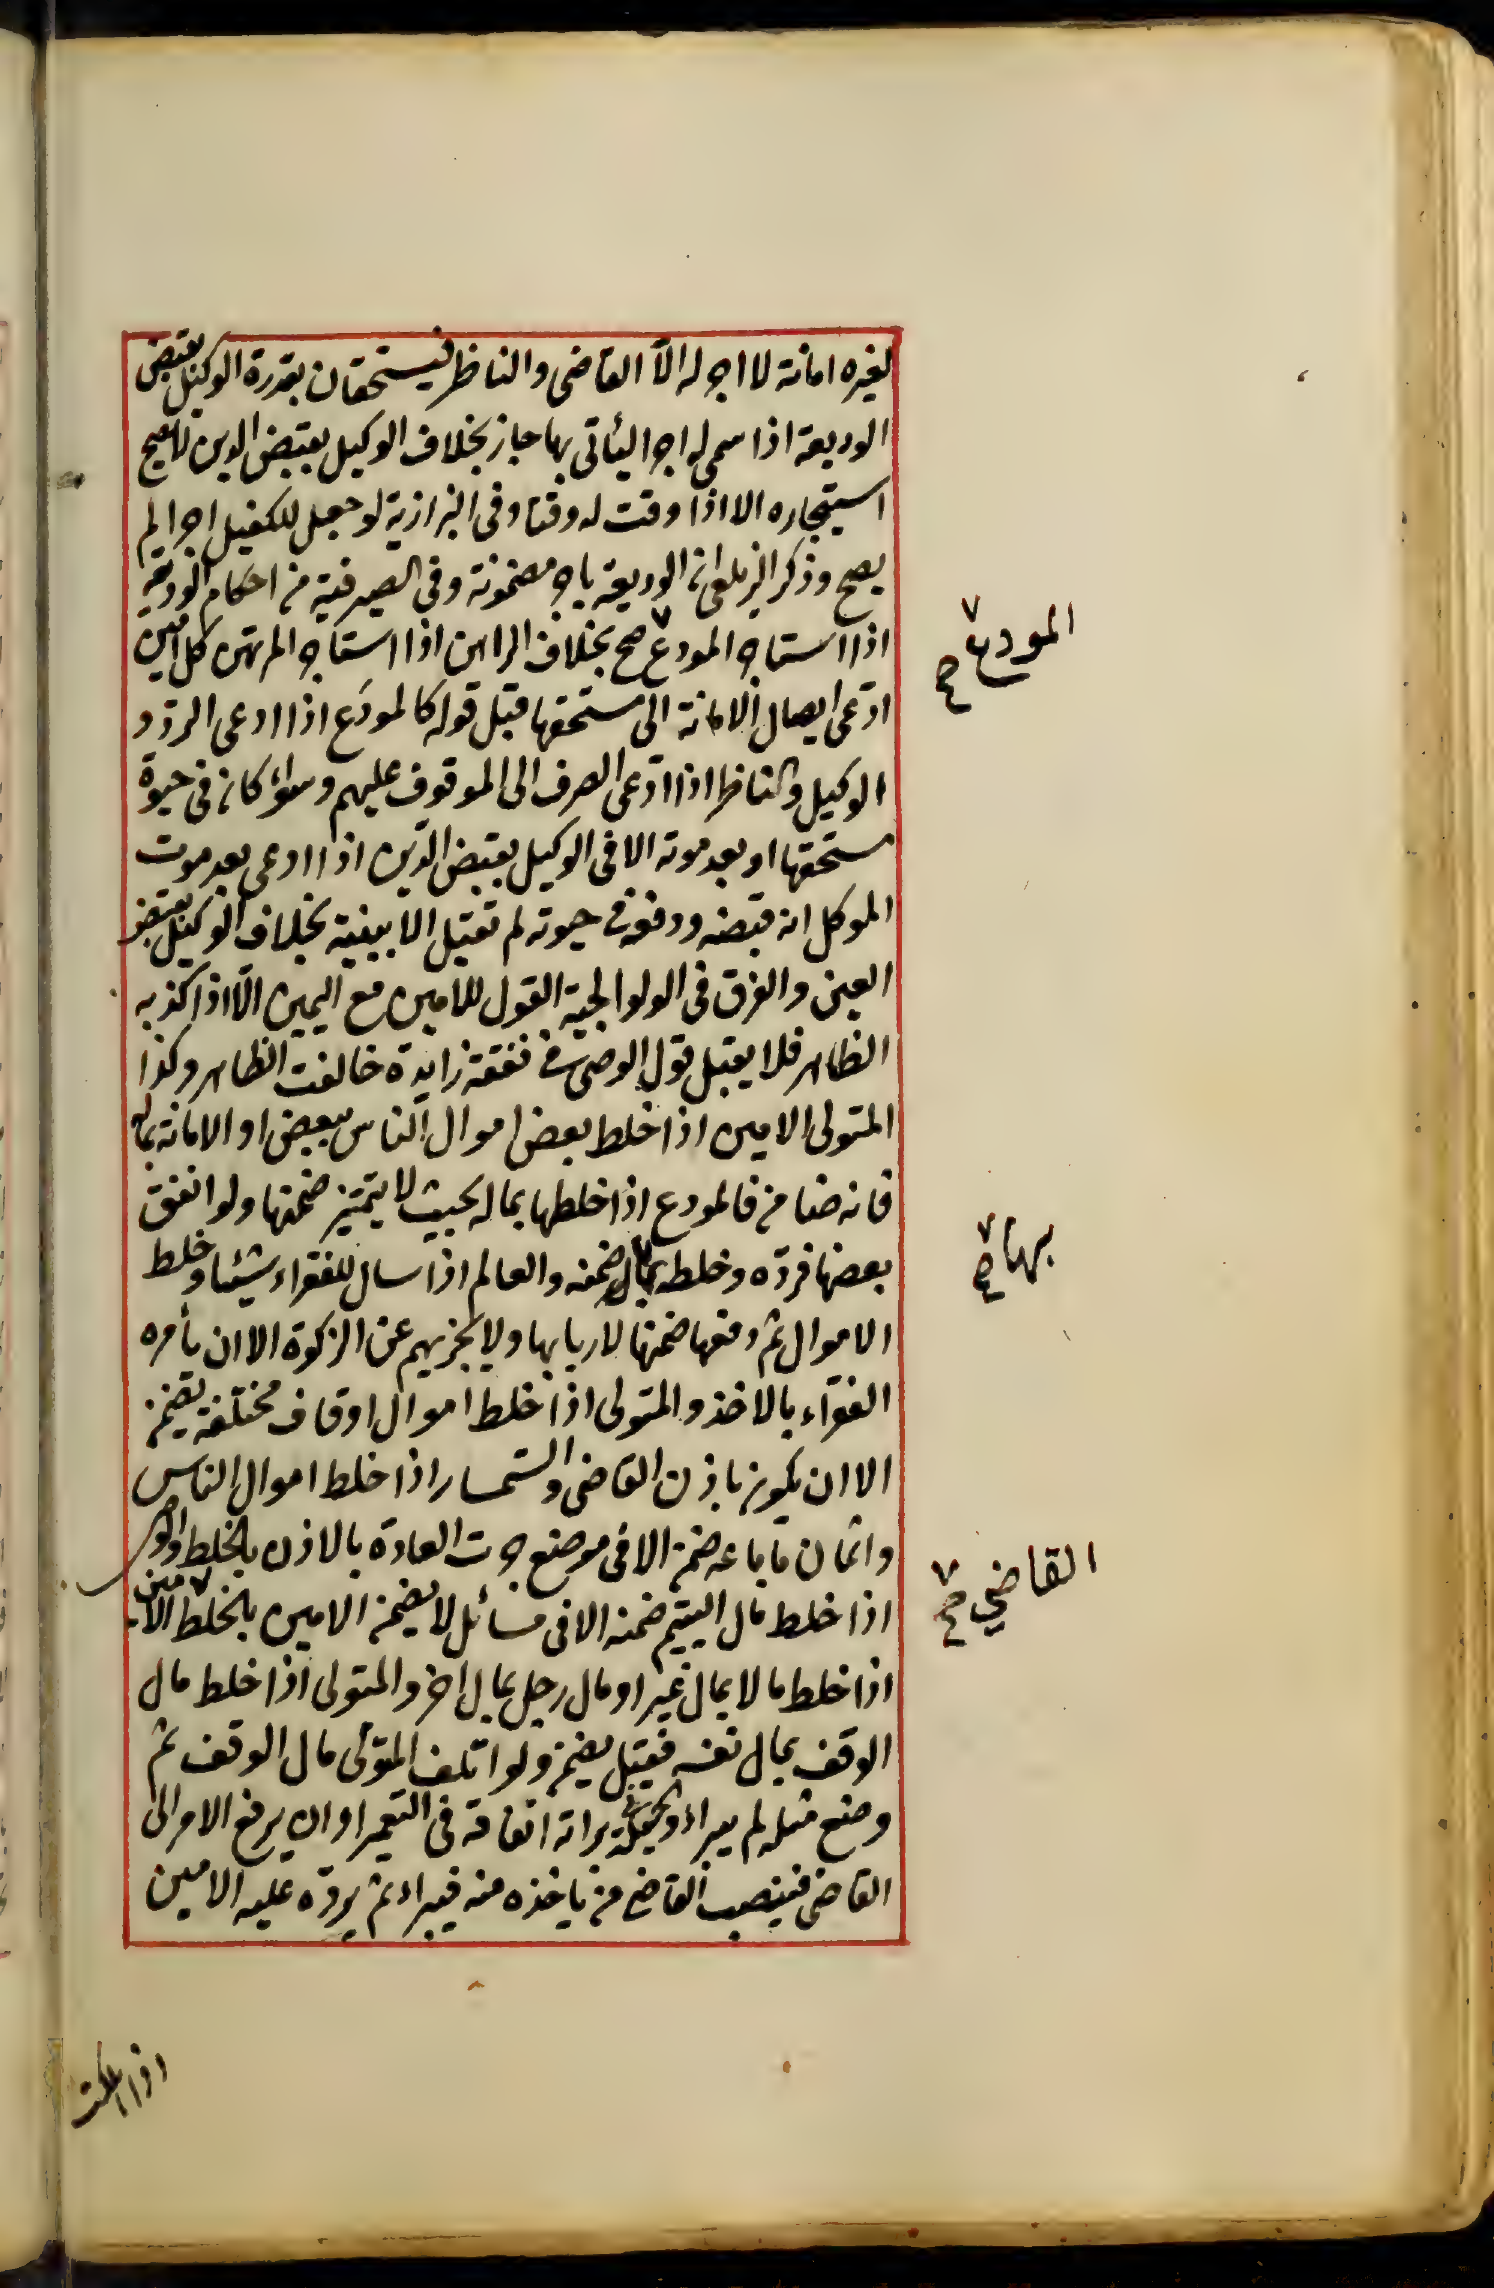 لغيره امانة لا اجر له الا القاضى والناظر فيستحقان بقدرة الوكيل بقبض
الوديعة اذا سمى له اجرا ليئاتى بها جاز بخلاف الوكيل بقبض الدين لا يصح
استيجاره الا اذا وقت له وقتا وفى البزازية لو جعل للكفيل اجرا لم
يصح وذكر الزيلعى ان الوديعة باجر مضمونة وفى الصيرفية من احكام الوديعة
اذا استاجر المودع صح بخلاف الراهن اذا استاجر المرتهن كل امين
ادّعى ايصال الامانة الى مستحقها قبل قوله كالمودَع اذا ادعى الردّ و
الوكيل والناظر اذا ادّعى الصرف الى الموقوف عليهم وسواء كان فى حيوة
مستحقها او بعد موته الا فى الوكيل بقبض الدّين اذا ادعى بعد موت
الموكل انه قبضه ودفعه فى حيوته لم تقبل الا ببينة بخلاف الوكيل بقبض
العين والفرق فى الولوالجية القول للامين مع اليمين الّا اذا كذبه
الظاهر فلا يقبل قول الوصى فى نفقة زايدة خالفت الظاهر وكذا
المتولى الامين اذا خلط بعض اموال الناس ببعض او الامانة بماله
فانه ضامن فالمودع اذا خلطها بماله بحيث لا يتميّز ضمنها ولو انفق
بعضها فردّه وخلطه بمال ضمنه والعالم اذا سال للفقراء شيئا وخلط
الاموال ثم دفعها ضمنها لاربابها ولا يجزيهم عن الزكوة الا ان يأمره
الفقراء بالاخذ والمتولى اذا خلط اموال اوقاف مختلفة يضمن
الا ان يكون باذن القاضى والسّمسار اذا خلط اموال الناس
واثمان ما باعه ضمن الا فى موضع جرت العادة بالاذن بالخلط والوصى
اذا خلط مال اليتيم ضمنه الا فى مسائل لا يضمن الامين بالخلط الامين
اذا خلط مالا بمال غير او مال رجل بمال اخر والمتولى اذا خلط مال
الوقف بمال نفسه فقيل يضمن ولو اتلف المتولى مال الوقف ثم
وضع مثله لم يبراء والحيلة فى براته انفاقه فى التعمير او ان يرفع الامر الى
القاضى فينصب القاضى من ياخذه منه فيبراء ثم يردّه عليه الامين
المودع صح
بها صح
القاضي صح
اذا هلكت